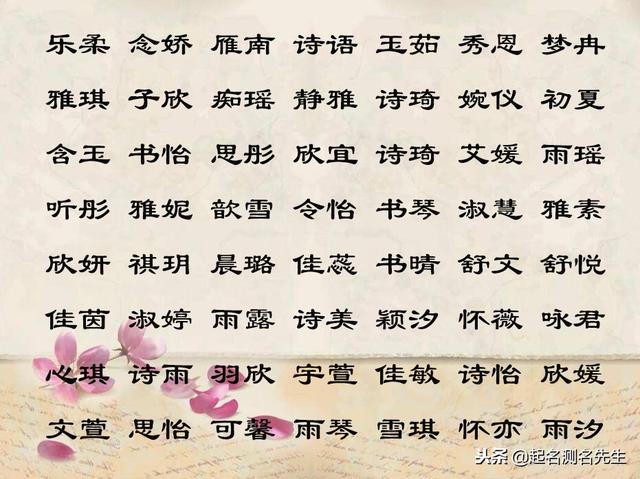 乐柔 念娇 雁南 诗语 玉茹 秀恩 梦冉
雅琪 子欣 痴瑶 静雅 诗琦 婉仪 初夏
含玉 书怡 思彤 欣宜 诗琦 艾媛 雨瑶
听彤 雅妮 歆雪 令怡 书琴 淑慧 雅素
欣妍 祺玥 晨璐 佳蕊 书晴 舒文 舒悦
佳茵 淑婷 雨露 诗美 颖汐 怀薇 咏君
心琪 诗雨 羽欣 宇萱 佳敏 诗怡 欣媛
文萱 思怡 可馨 雨琴 雪琪 怀亦 雨汐
头条 @起名测名先生